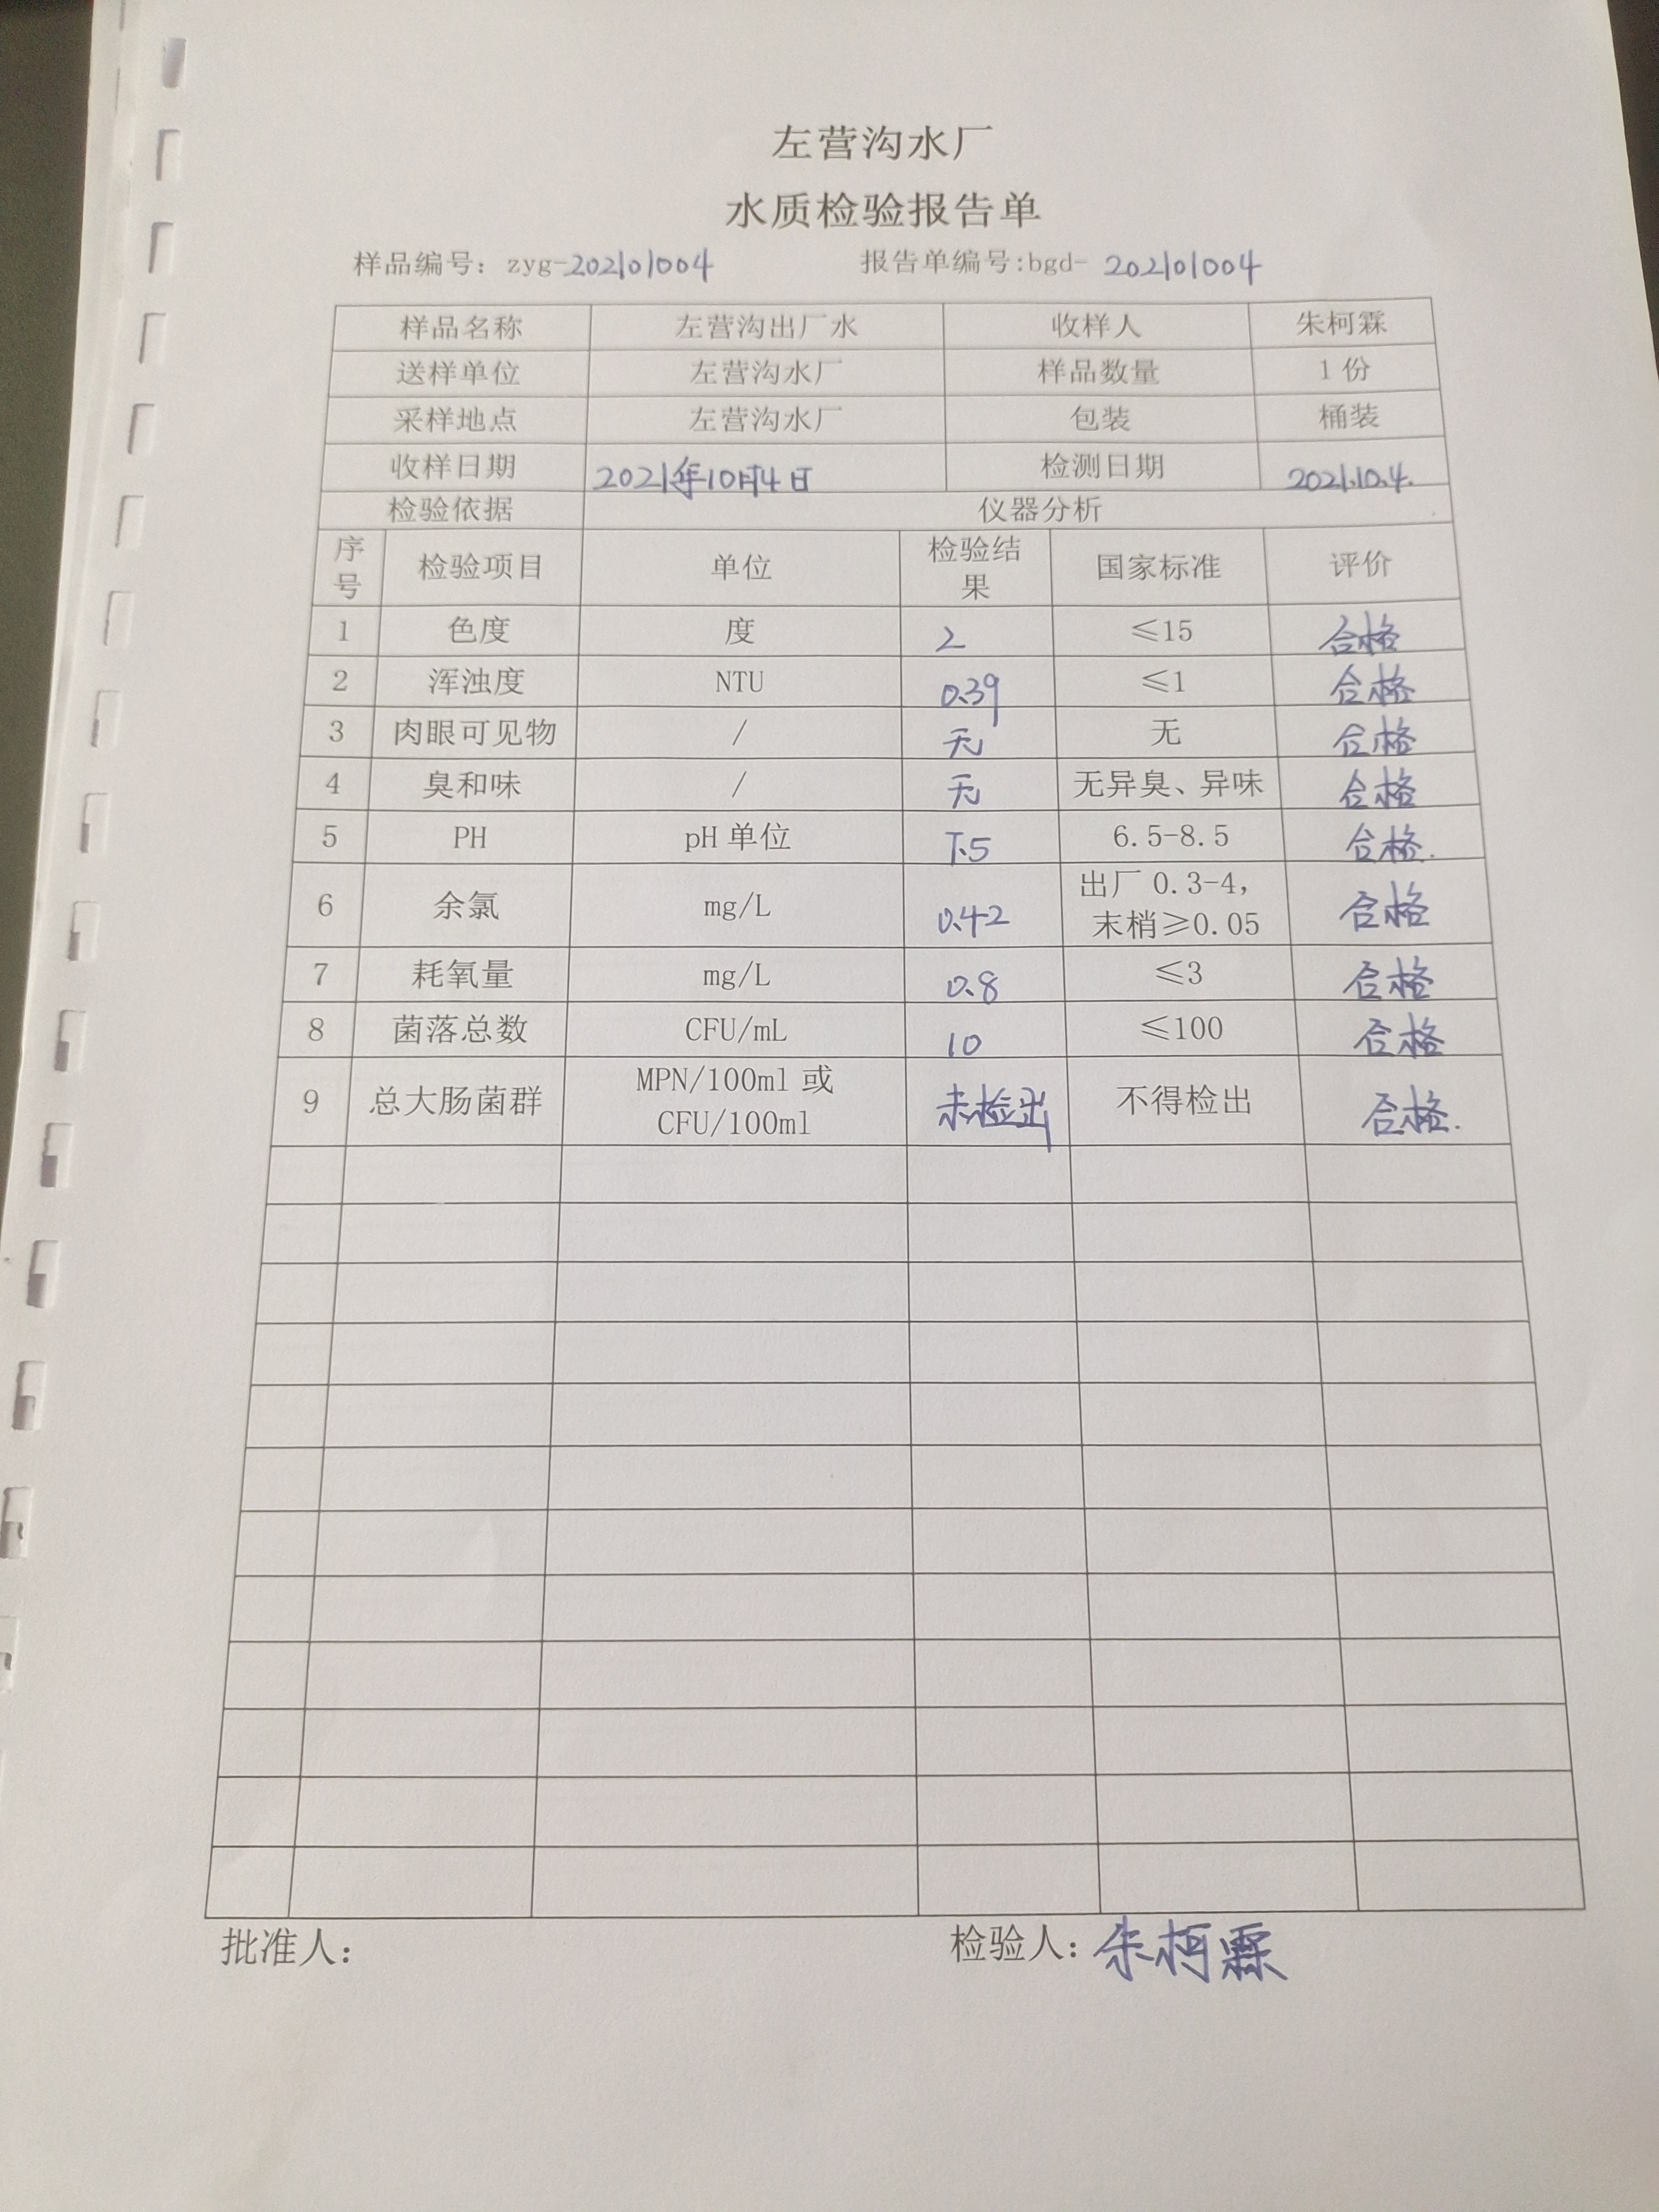 左营沟水厂
水质检验报告单
样品编号：zyg-202101004 报告单编号:bgd- 202101004
样品名称 左营沟出厂水 收样人 朱柯霖
送样单位 左营沟水厂 样品数量 1 份
采样地点 左营沟水厂 包装 桶装
收样日期 2021年10月4日 检测日期 2021.10.4.
检验依据 仪器分析
序号 检验项目 单位 检验结果 国家标准 评价
1 色度 度 2 ≤15 合格
2 浑浊度 NTU 0.39 ≤1 合格
3 肉眼可见物 / 无 无 合格
4 臭和味 / 无 无异臭、异味 合格
5 PH pH 单位 7.5 6.5-8.5 合格.
6 余氯 mg/L 0.42 出厂 0.3-4，末梢≥0.05 合格
7 耗氧量 mg/L 0.8 ≤3 合格
8 菌落总数 CFU/mL 10 ≤100 合格
9 总大肠菌群 MPN/100ml 或 CFU/100ml 未检出 不得检出 合格.
批准人： 检验人：朱柯霖